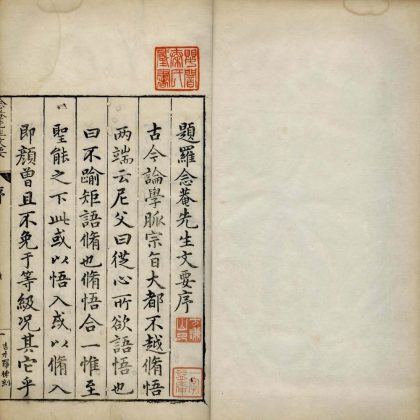 題羅念菴先生文要序
古今論學脈宗旨大都不越脩悟
两端云尼父曰從心所欲語悟也
曰不踰矩語脩也脩悟合一惟至
聖能之下此或以悟入或以脩入
即顔曾且不免于等級况其它乎
序